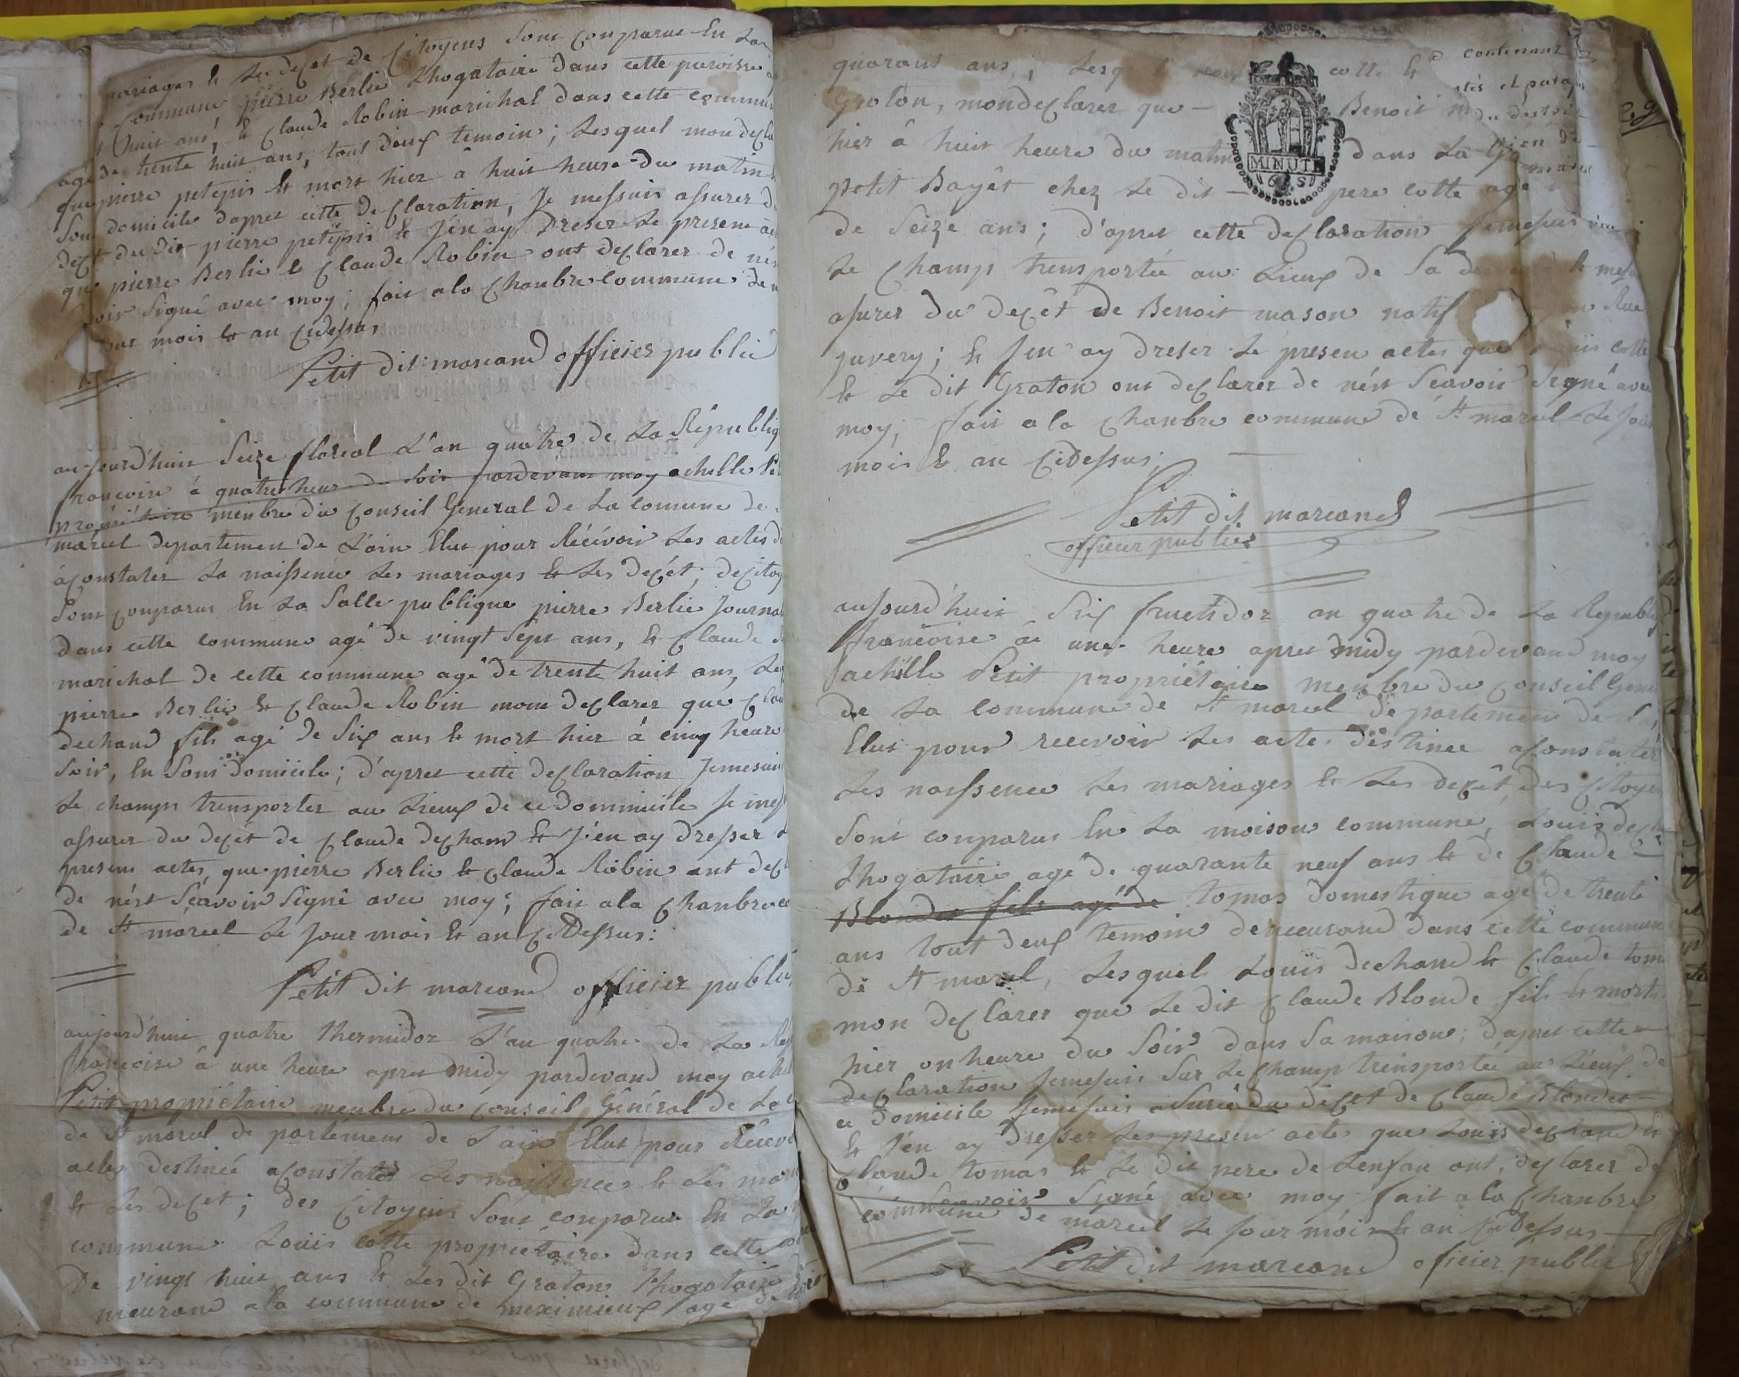 mariages & les decet de Citoyens Sont conparus En La
Commune, pierre Berlie Lhogataire dans cette paroisse
huit ans, & Claude Robin marichal dans cette commun
agé de trente huit ans, tout deux temoin; Lesquel mon decla
que pierre petepin & mort hier â huit heure du matin
Son domicile d'apret cette declaration, Je messuis assurer d
decet du dit pierre petepin & J'en ay Dreser Le presen
que pierre Berlie & Claude Robin ont declarer de né
voir Signé avec moy; fait a la Chanbre commune de
mois & an Cidessus
Petit dit marcand officier public
aujourd'huit Seize floréal L'an quatre de La Républiq
francoise à quatre heur du Soir pardevant moy achille
propriétaire menbre du Conseil General de La comune de
marcel departement de L'ain Elut pour Récévoir Les actes d
àconstater La naissence Les mariages & Les decét; de Citoy
Sont conparus En La Salle publique pierre Berlie Journa
dans cette commune agé de vingt Sept ans, & Claude
marichal de cette commune agé de trente huit ans, Les
pierre Berlie & Claude Robin mont declarer que Cla
dechand fils agé de Six ans & mort hier à cinq heure
Soir, En Sont domicile; d'apret cette declaration Jemesuis
Le champs trensporter au Lieux de ce dommicile Je mes
assurer du decét de Claude decham & J'en ay dresser
presens actes, que pierre Berlie & Claude Robin ont decl
de nést Séavoir Signé avec moy; fait a la Chanbre
de St marcel Le Jour mois & an CiDessus:
Petit dit marcand officier public
aujourd'huit quatre thermidor L'an quatre de La Re
françoise â une heure apret midy pardevand moy achi
Petit propriétaire menbre du conseil Général de La
de St marcel departemens de L'ain Elut pour Récev
actes destinée aconstater Les naissences & Les mar
& Les decet; des Citoyens Sont conparus En La
commune Louis cotte proprietaire dans cette
De vingt huit ans & Les dit Graton Lhogataire
meurand a la commune de meximieux agé de
quarant ans; Lesq cotte &
Graton, mon declarer que Benoit
hier â huit heure du matin dans La
petit Bayêt chez Le dit pere cotte agé
de Seize ans; d'apret cette declaration Jemesuis
Le Champs trensportée au Lieux de Sa & mes
asurer du decêt de Benoit mason natif
Juvery; & J'en ay dreser Le presen actes que cotte
& Le dit Graton ont declarer de nést Seavoir Signé avec
moy; fait a la Chanbre commune de St marcel Le Jour
mois & an CiDessus;
MINUTE
contenant
Petit dit marcand
officier public
aujourd'huit Six fructidor an quatre de La Republiq
françoise âe une heure apret midy pardevand moy
achille Petit propriétaire menbre du conseil Gene
de La commune de St marcel departemens de L
Elut pour recevoir Les actes destinee aConstater
Les naissence Les mariages & Les decêt des Citoyen
Sont conparus En La maison commune, Louis dech
Lhogataire agé de quarante neuf ans & de Claude
Blondet fils agé de tomas domestique agé de trente
ans tout deux temoin demeurand dans cette commune
de St marcel, Lesquel Louis dechand & Claude tom
mon declarer que Le dit Claude Blonde fils & morts
hier on heure du Soir dans Sa maison; d'apret cette
declaration Jemesuis Sur Le champ trensportée au Lieux de
ce Domicile Jemesuis asurée du décet de Claude Blondet
& J'en ay Dresser Les presen actes que Louis dechand &
Claude tomas & Le dit pere de Lenfan ont declarer de
Seavoir Signé avec moy fait a la Chanbre
commune de marcel Le Jour mois & an CiDessus
Petit dit marcand officier public